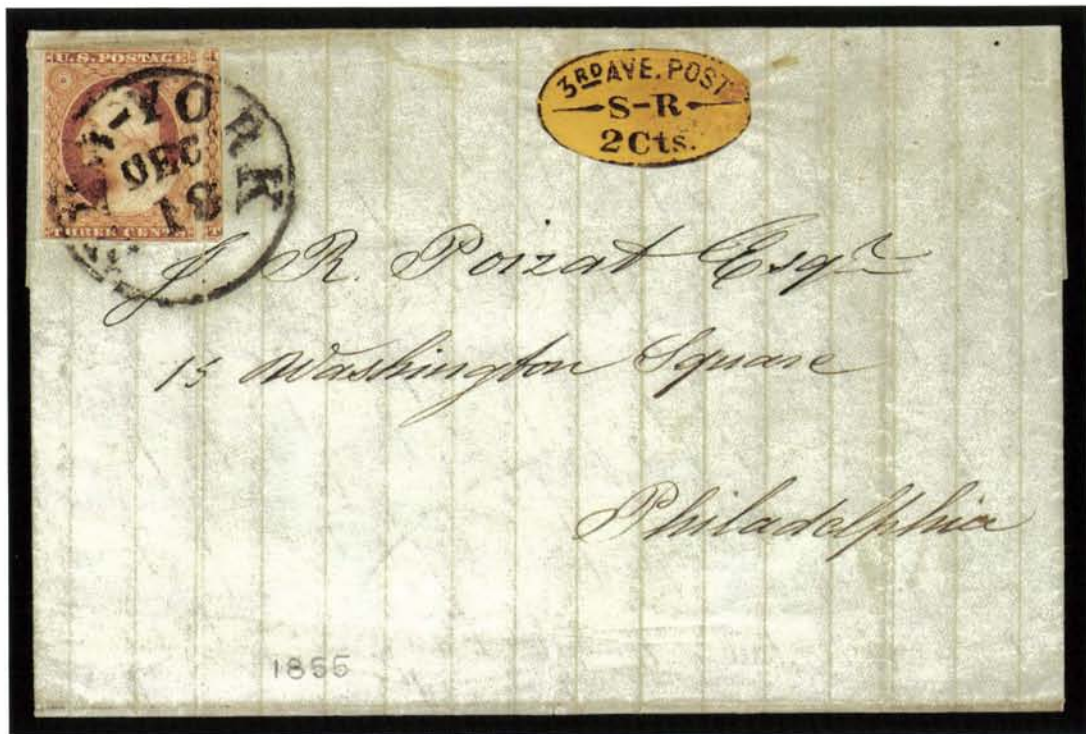 U.S. POSTAGE
THREE CENTS
NEW-YORK
DEC
18
3RD AVE. POST
S-R
2 Cts.
J. R. Poizat Esqr
15 Washington Square
Philadelphia
1855